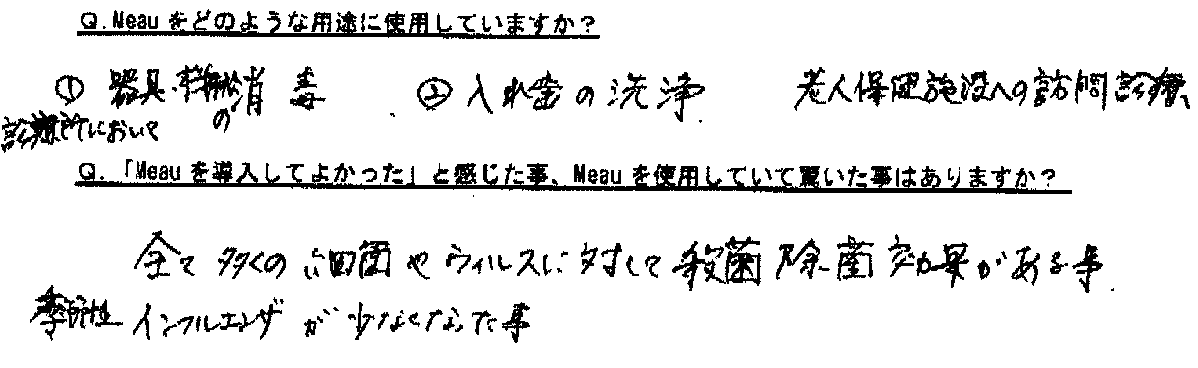 Q.Meauをどのような用途に使用していますか?
① 器具・の消毒 ② 入れ歯の洗浄 老人保健施設への訪問診療、
診療所において
Q.「Meauを導入してよかった」と感じた事、Meauを使用していて驚いた事はありますか?
全て多くの細菌やウィルスに対して殺菌除菌効果がある事.
季節性インフルエンザが少なくなった事